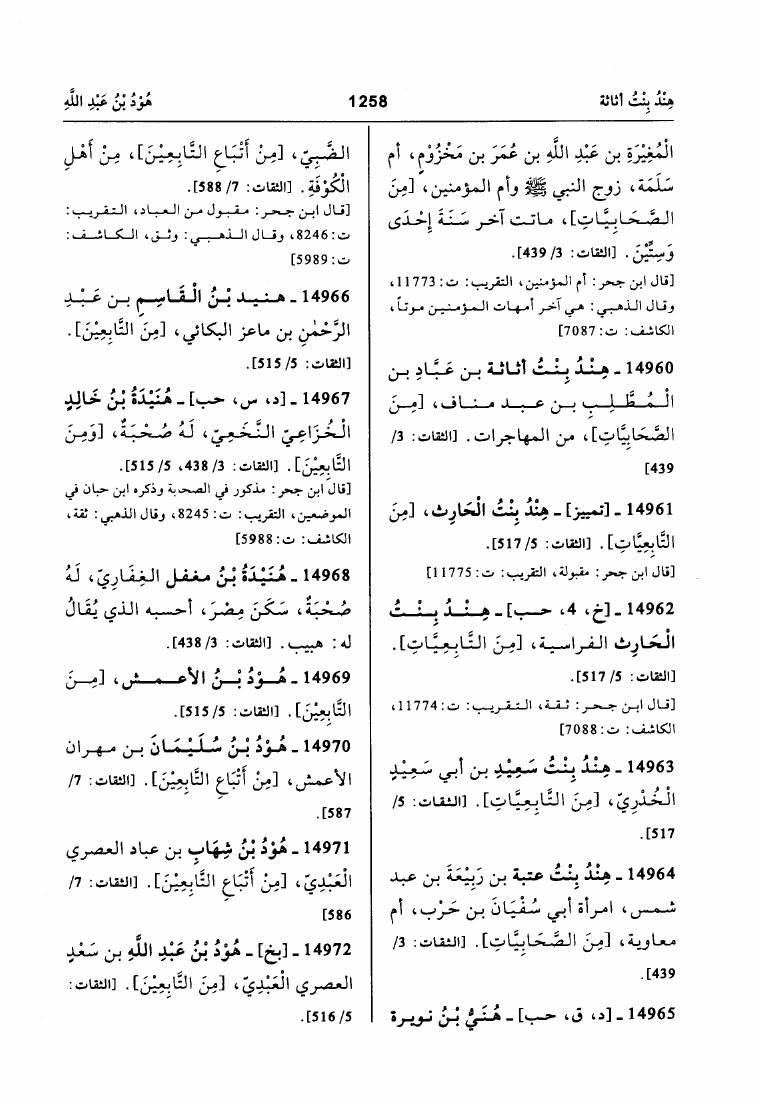 هِنْدُ بِنْتُ أثاثة
1258
هُوْدُ بْنُ عَبْدِ اللَّهِ
الْمُغِيْرَةِ بن عَبْدِ اللَّهِ بن عُمَرَ بن مَخْزُوْمٍ، أم
سَلَمَة، زوج النبي ﷺ وأم المؤمنين، [مِنَ
الصَّحَابِيَّاتِ]، ماتت آخر سَنَةَ إحْدَى
وَسِتِّيْنَ. [الثقات: 3/ 439].
[قال ابن حجر: أم المؤمنين، التقريب: ت: 11773،
وقال الذهبي: هي آخر أمهات المؤمنين موتاً،
الكاشف: ت: 7087]
14960 ـ هِنْدُ بِنْتُ أثاثة بن عَبَّادِ بن
الْمُطَّلِبِ بن عبد مناف، [مِنَ
الصَّحَابِيَّاتِ]، من المهاجرات. [الثقات: 3/
439]
14961 ـ [تمييز] ـ هِنْدُ بِنْتُ الْحَارِثِ، [مِنَ
التَّابِعِيَّاتِ]. [الثقات: 5/ 517].
[قال ابن حجر: مقبولة، التقريب: ت: 11775]
14962 ـ [خ، 4، حب] ـ هِنْدُ بِنْتُ
الْحَارِثِ الفراسية، [مِنَ التَّابِعِيَّاتِ].
[الثقات: 5/ 517].
[قال ابن حجر: ثقة، التقريب: ت: 11774،
الكاشف: ت: 7088]
14963 ـ هِنْدُ بِنْتُ سَعِيْدِ بن أبي سَعِيْدٍ
الْخُدْرِيِّ، [مِنَ التَّابِعِيَّاتِ]. [الثقات: 5/
517].
14964 ـ هِنْدُ بِنْتُ عتبة بن رَبِيْعَةَ بن عبد
شمس، امرأة أبي سُفْيَانَ بن حَرْبٍ، أم
معاوية، [مِنَ الصَّحَابِيَّاتِ]. [الثقات: 3/
439].
14965 ـ [د، ق، حب] ـ هُنَيُّ بْنُ نويرة
الضَّبِيّ، [مِنْ أَتْبَاعِ التَّابِعِيْنَ]، مِنْ أَهْلِ
الْكُوْفَةِ. [الثقات: 7/ 588].
[قال ابن حجر: مقبول من العباد، التقريب:
ت: 8246، وقال الذهبي: وثق، الكاشف:
ت: 5989]
14966 ـ هنيد بْنُ الْقَاسِمِ بن عَبْدِ
الرَّحْمٰنِ بن ماعز البكائي، [مِنَ التَّابِعِيْنَ].
[الثقات: 5/ 515].
14967 ـ [د، س، حب] ـ هُنَيْدَةُ بْنُ خَالِدٍ
الْخُزَاعِيّ النَّخَعِيّ، لَهُ صُحْبَةٌ، [وَمِنَ
التَّابِعِيْنَ]. [الثقات: 3/ 438، 5/ 515].
[قال ابن حجر: مذكور في الصحابة وذكره ابن حبان في
الموضعين، التقريب: ت: 8245، وقال الذهبي: ثقة،
الكاشف: ت: 5988]
14968 ـ هُنَيْدَةُ بْنُ مغفل الغِفَارِيّ، لَهُ
صُحْبَةٌ، سَكَنَ مِصْرَ، أحسبه الذي يُقَالُ
له: هبيب. [الثقات: 3/ 438].
14969 ـ هُوْدُ بْنُ الأعمش، [مِنَ
التَّابِعِيْنَ]. [الثقات: 5/ 515].
14970 ـ هُوْدُ بْنُ سُلَيْمَانَ بن مهران
الأعمش، [مِنْ أَتْبَاعِ التَّابِعِيْنَ]. [الثقات: 7/
587].
14971 ـ هُوْدُ بْنُ شِهَابِ بن عباد العصري
الْعَبْدِيّ، [مِنْ أَتْبَاعِ التَّابِعِيْنَ]. [الثقات: 7/
586]
14972 ـ [بخ] ـ هُوْدُ بْنُ عَبْدِ اللَّهِ بن سَعْدٍ
العصري الْعَبْدِيّ، [مِنَ التَّابِعِيْنَ]. [الثقات:
5/ 516].